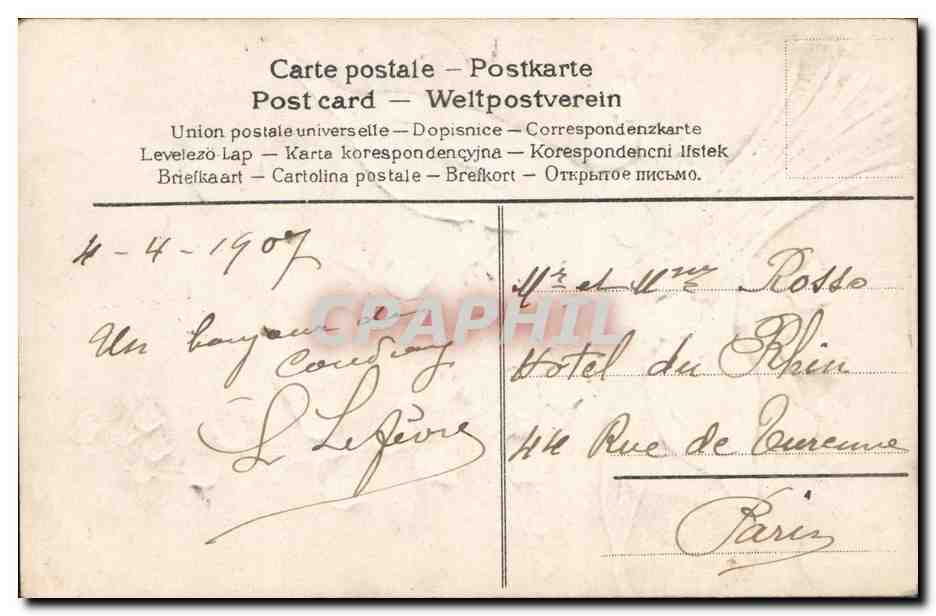 Carte postale – Postkarte
Post card — Weltpostverein
Union postale universelle — Dopisnice — Correspondenzkarte
Levelezö-Lap — Karta korespondencyjna — Korespondencni listek
Briefkaart — Cartolina postale — Brefkort — Открытое письмо.
4 - 4 - 1907
Un bonjour des
L Lefèvre
Mr et Mme Rosso
Hotel du Rhin
44 Rue de Turenne
Paris
CPAPHIL